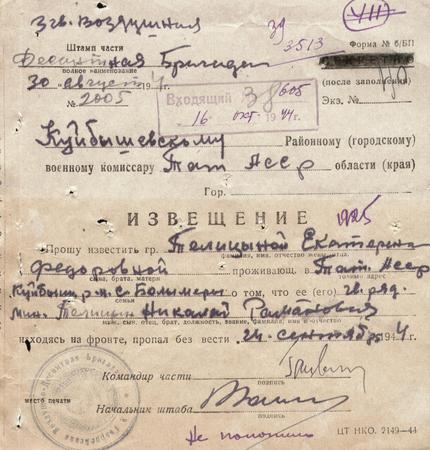 3 гв. Воздушная
3513
VIII
Штамп части
Форма № 6/БП
Десантная Бригада
полное наименование
(после заполнения)
30 август 194
№ 2005
Экз. №
Входящий 38605
16 окт. 1944 г.
Куйбышевскому Районному (городскому)
военному комиссару Тат АССР области (края)
Гор.
ИЗВЕЩЕНИЕ
1925
Прошу известить гр. Телицыной Екатерина
фамилия, имя, отчество
Федоровной проживающ. в Тат. АССР
жена, брата, матери
точный адрес
Куйбыш. р-н. с. Болымеры о том, что ее (его) гв. ряд.
семьи
Телицин Николай Романович
муж, сын, брат, должность, звание, фамилия, имя и отчество
находясь на фронте, пропал без вести 24 сентября 1944
Командир части
подпись
место печати
Начальник штаба
подпись
ЦТ НКО. 2149—44